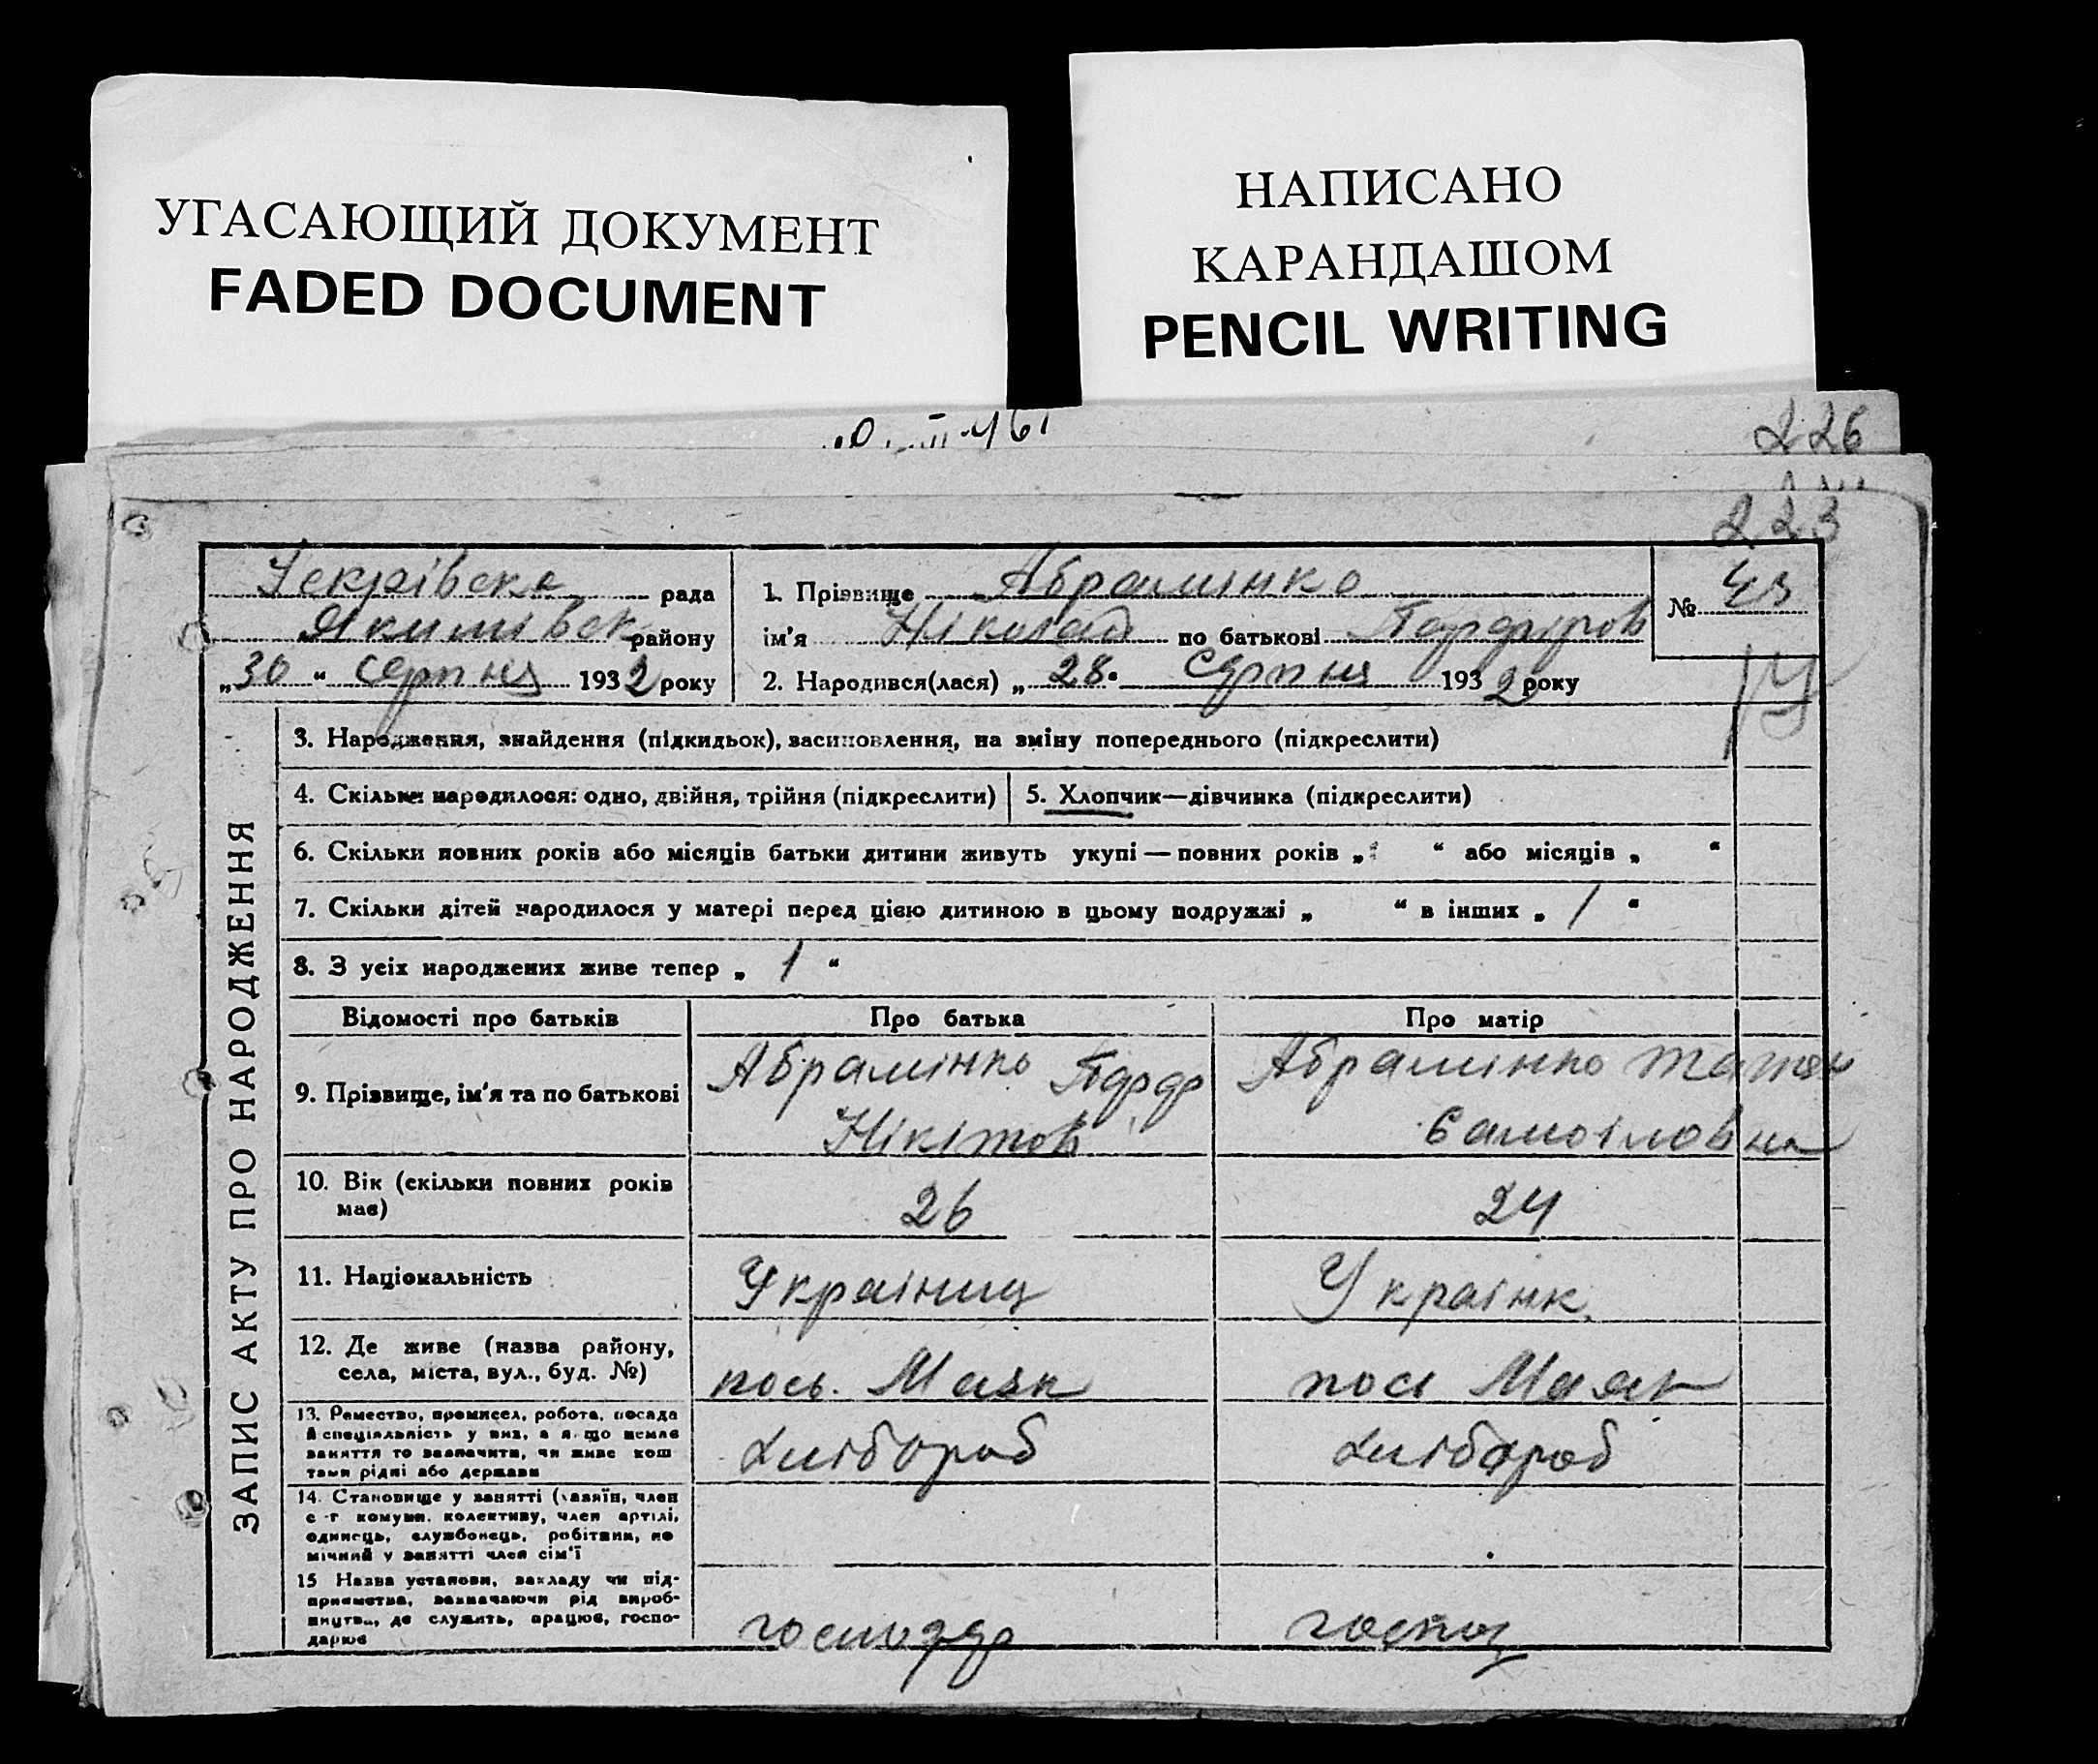 УГАСАЮЩИЙ ДОКУМЕНТ
FADED DOCUMENT
НАПИСАНО
КАРАНДАШОМ
PENCIL WRITING
226
223
рада
району
„30“ серпня 1932 року
1. Прізвище Абрамінко
ім'я Ніколай по батькові
2. Народився(лася) „28“ серпня 1932 року
№ 43
ЗАПИС АКТУ ПРО НАРОДЖЕННЯ
3. Народження, знайдення (підкидьок), засиновлення, на зміну попереднього (підкреслити)
4. Скільки народилося: одно, двійня, трійня (підкреслити)
5. Хлопчик—дівчинка (підкреслити)
6. Скільки повних років або місяців батьки дитини живуть укупі — повних років „ “ або місяців „ “
7. Скільки дітей народилося у матері перед цією дитиною в цьому подружжі „ “ в інших „ 1 “
8. З усіх народжених живе тепер „ 1 “
Відомості про батьків Про батька Про матір
9. Прізвище, ім'я та по батькові
Абрамінко
Нікітов
Абрамінко Татян
Самоіловна
10. Вік (скільки повних років
має)
26
24
11. Національність
Україниц
Українк
12. Де живе (назва району,
села, міста, вул., буд. №)
пось. Маяк
пос Маяк
13. Ремество, промисел, робота, посада
й спеціяльність у них, а якщо немає
заняття то зазначити, чи живе кош
тами рідні або держави
хлібороб
хлібороб
14. Становище у занятті (хазяїн, член
с-г комуни, колективу, член артілі,
одинець, службовець, робітник, по
мічний у занятті член сім'ї
15 Назва установи, закладу чи під-
приємства, зазначаючи рід вироб-
ництва, де служить, працює, госпо-
дарює